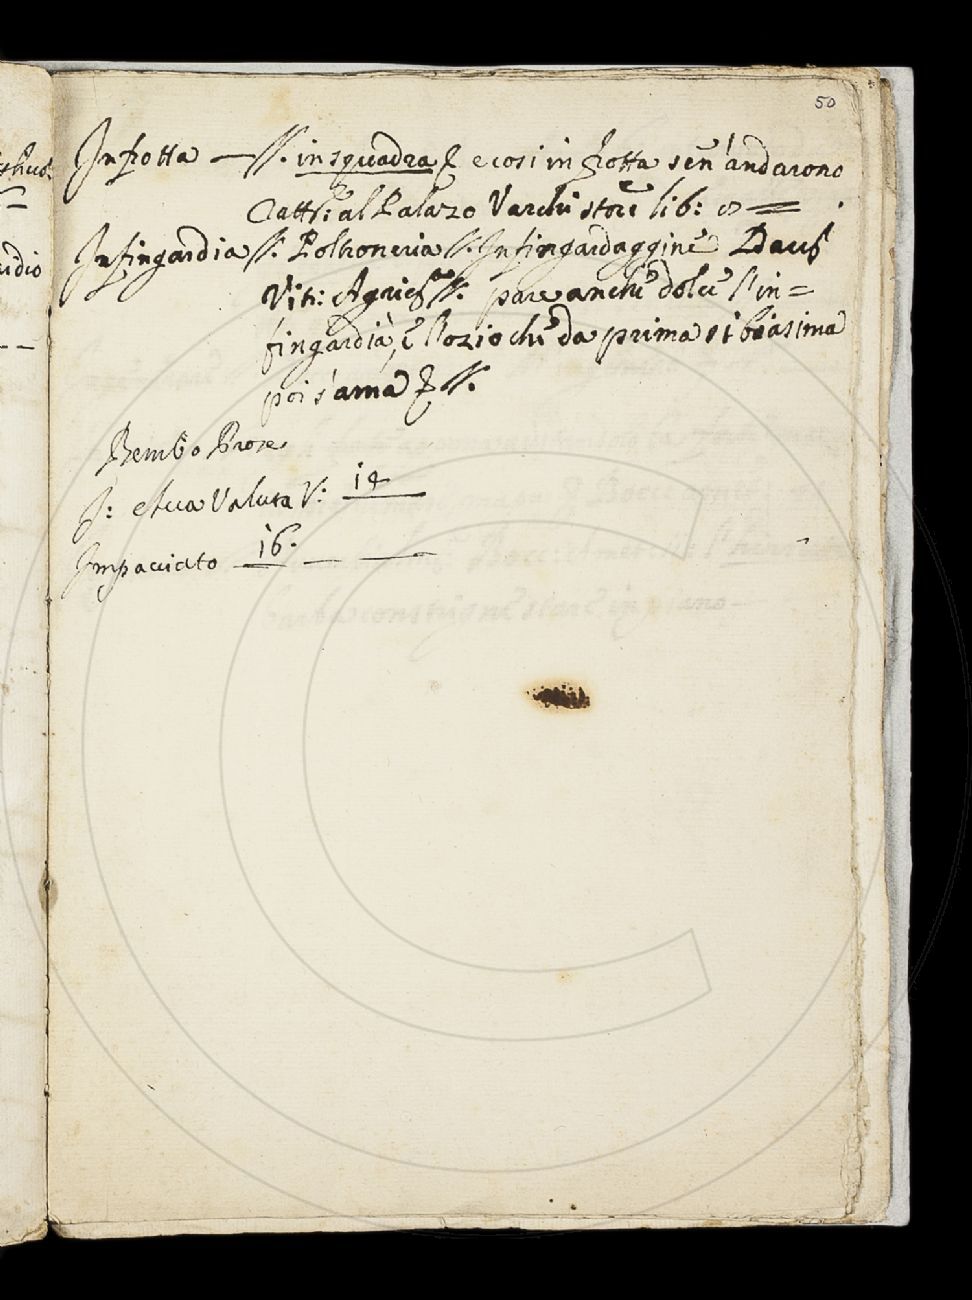 50
Infrotta — //. in squadra & e cosi in frotta sen' andarono
tutti al Palazo Varchi store lib:
Infingardia //. Poltroneria //. Infingardaggine Dav
Vit: Agric //. pare anche dolce l'in=
fingardia, e l'ozio che da prima si biasima
poi s'ama & //.
Bembo Prose
Valuta V: 14
Impacciato 16.